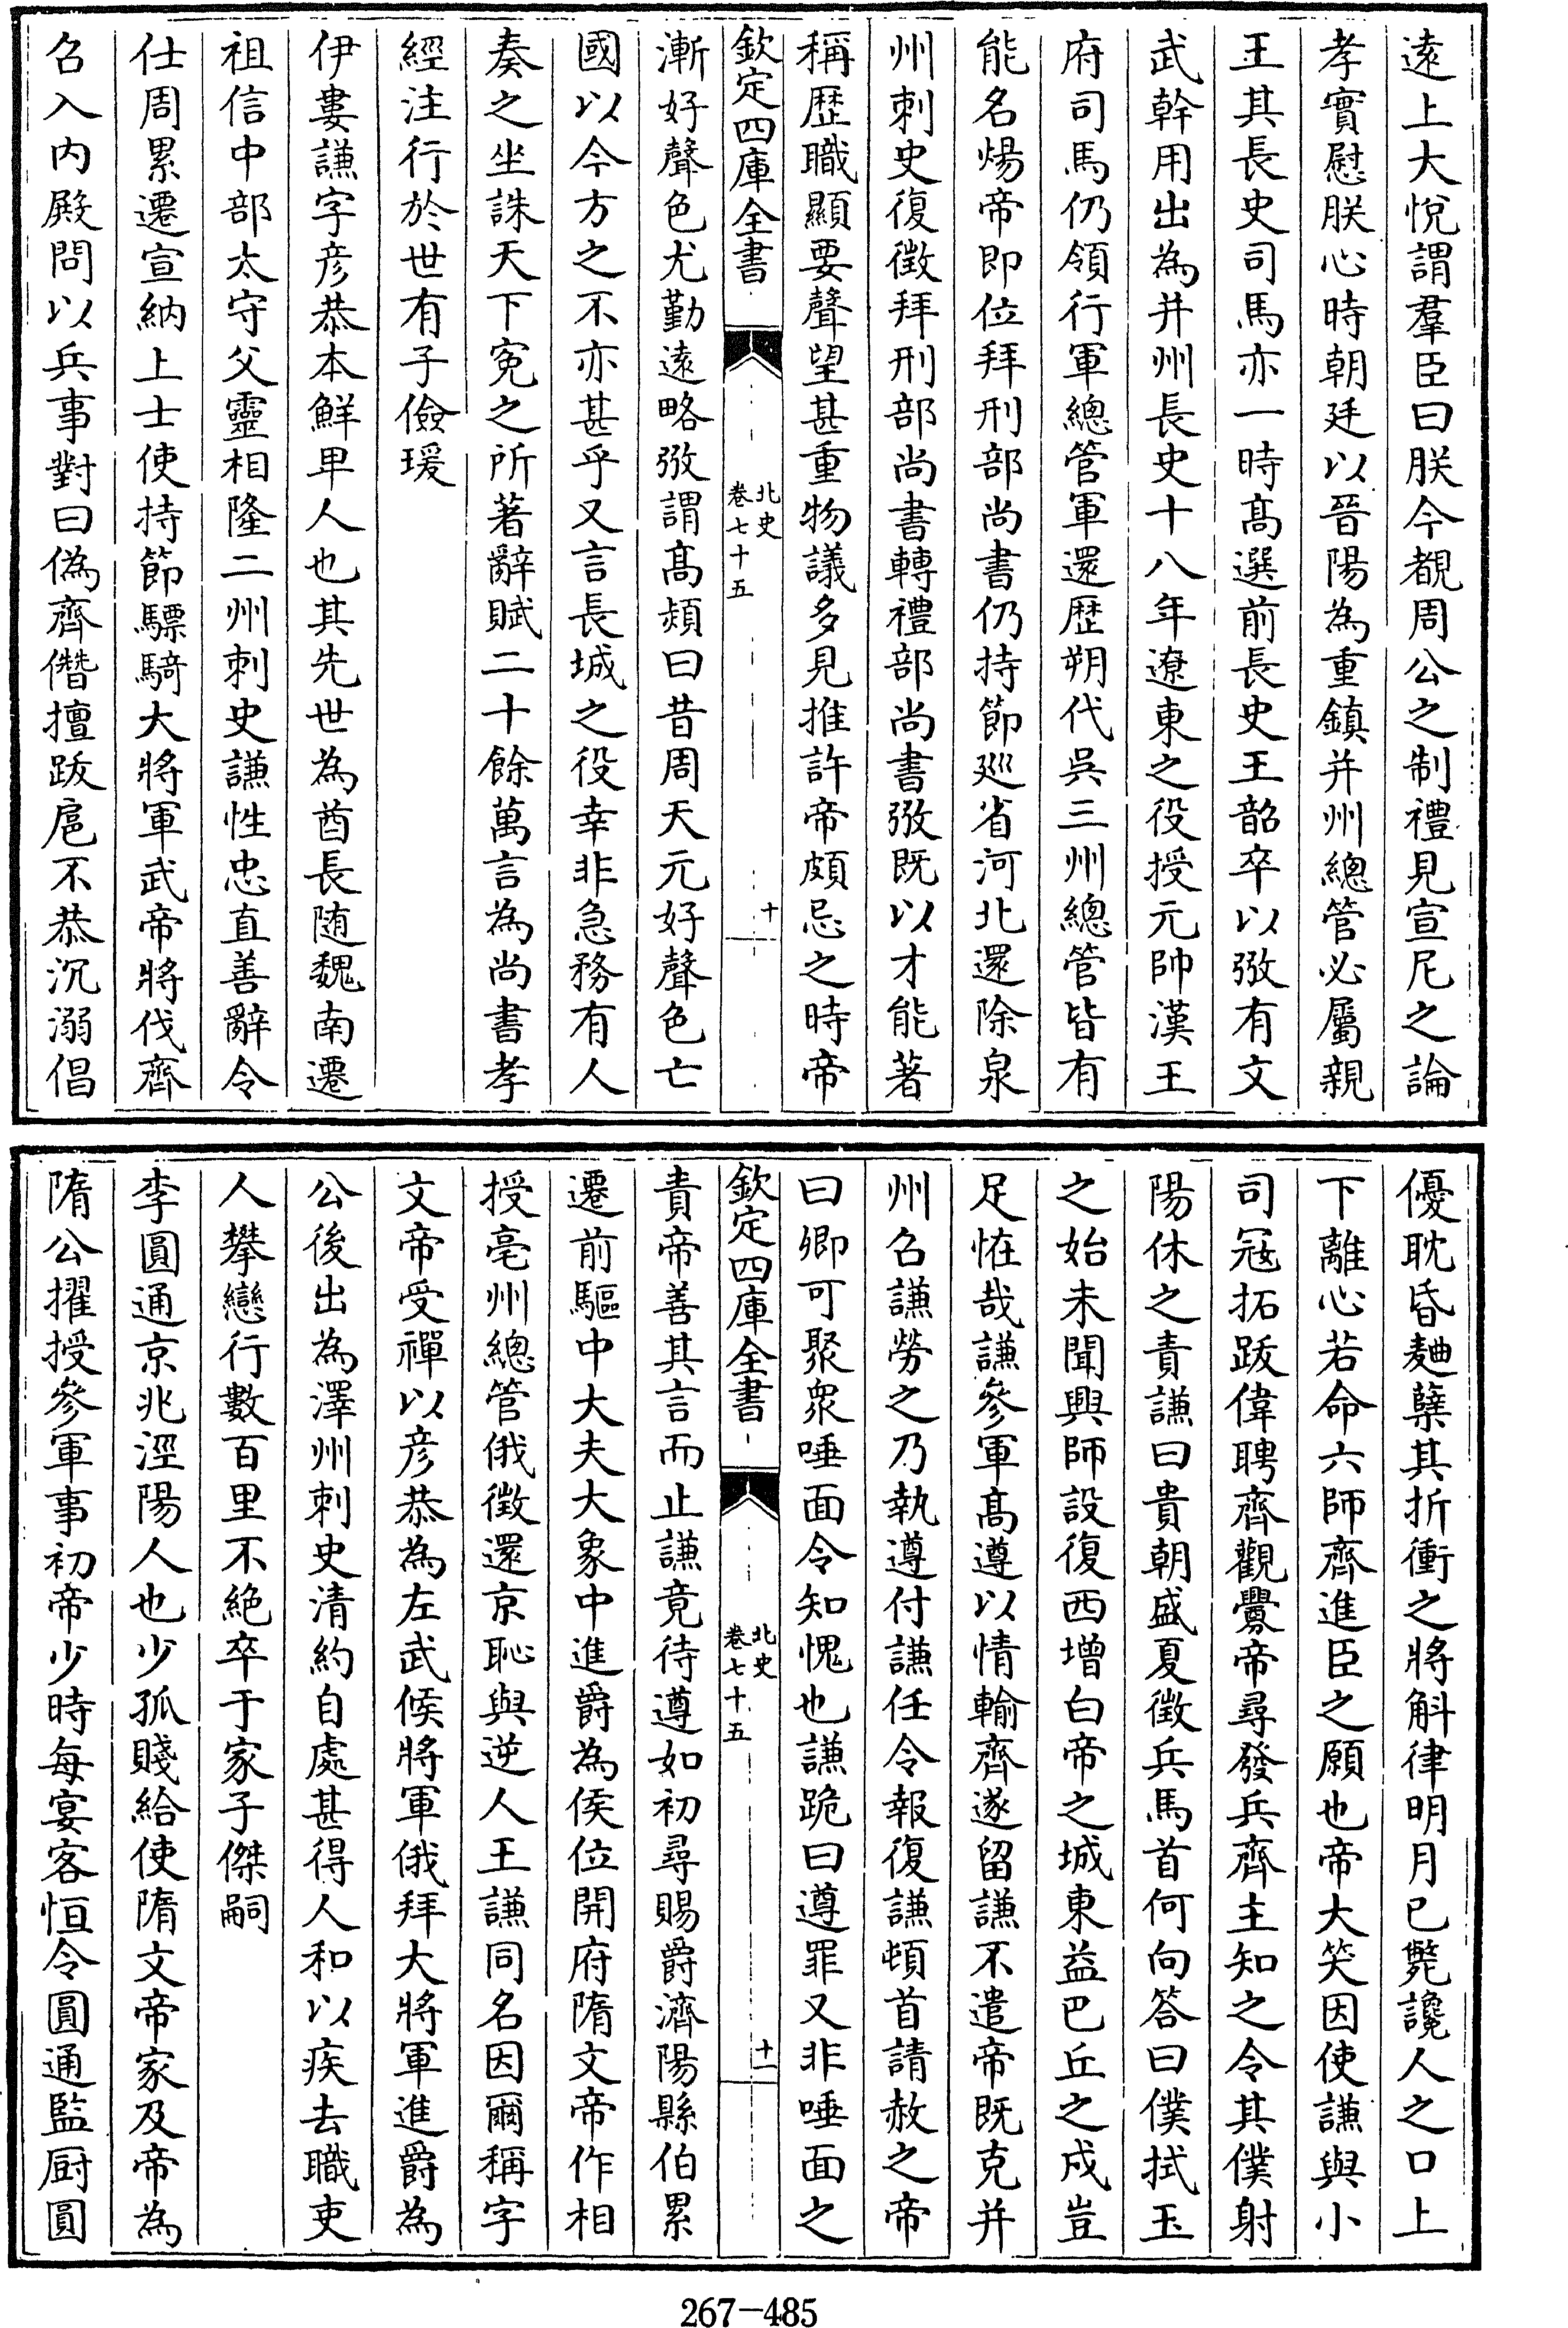 遠上大悅謂羣臣曰朕今覩周公之制禮見宣尼之論
孝實慰朕心時朝廷以晉陽為重鎮并州總管必屬親
王其長史司馬亦一時髙選前長史王韶卒以弢有文
武幹用出為并州長史十八年遼東之役授元帥漢王
府司馬仍領行軍總管軍還歴朔代吳三州總管皆有
能名煬帝即位拜刑部尚書仍持節廵省河北還除泉
州刺史復徵拜刑部尚書轉禮部尚書弢既以才能著
稱歴職顯要聲望甚重物議多見推許帝頗忌之時帝
欽定四庫全書
北史
卷七十五
十
漸好聲色尤勤遠略弢謂髙熲曰昔周天元好聲色亡
國以今方之不亦甚乎又言長城之役幸非急務有人
奏之坐誅天下寃之所著辭賦二十餘萬言為尚書孝
經注行於世有子儉瑗
伊婁謙字彦恭本鮮卑人也其先世為酋長随魏南遷
祖信中部太守父靈相隆二州刺史謙性忠直善辭令
仕周累遷宣納上士使持節驃騎大將軍武帝將伐齊
召入内殿問以兵事對曰偽齊僭擅跋扈不恭沉溺倡
優耽昏麯糵其折衝之將斛律明月已斃讒人之口上
下離心若命六師齊進臣之願也帝大笑因使謙與小
司冦拓跋偉聘齊觀釁帝尋發兵齊主知之令其僕射
陽休之責謙曰貴朝盛夏徵兵馬首何向答曰僕拭玉
之始未聞興師設復西增白帝之城東益巴丘之戍豈
足恠哉謙參軍髙遵以情輸齊遂留謙不遣帝既克并
州召謙勞之乃執遵付謙任令報復謙頓首請赦之帝
曰卿可聚衆唾面令知愧也謙跪曰遵罪又非唾面之
欽定四庫全書
北史
卷七十五
十一
責帝善其言而止謙竟待遵如初尋賜爵濟陽縣伯累
遷前驅中大夫大象中進爵為侯位開府隋文帝作相
授亳州總管俄徵還京恥與逆人王謙同名因爾稱字
文帝受禪以彦恭為左武候將軍俄拜大將軍進爵為
公後出為澤州刺史清約自處甚得人和以疾去職吏
人攀戀行數百里不絶卒于家子傑嗣
李圓通京兆涇陽人也少孤賤給使隋文帝家及帝為
隋公擢授參軍事初帝少時每宴客恒令圓通監厨圓
267-485